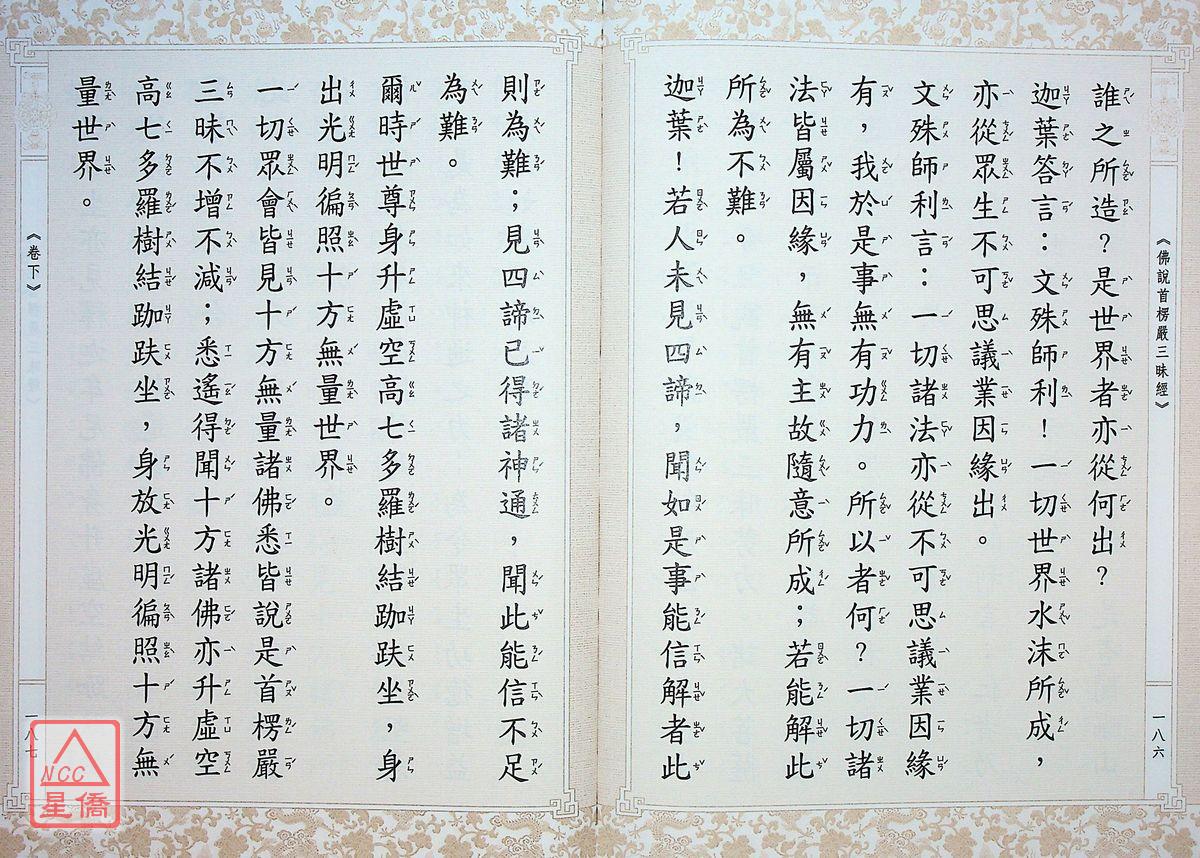 《佛說首楞嚴三昧經》
一八六
誰之所造？是世界者亦從何出？
迦葉答言：文殊師利！一切世界水沫所成，
亦從眾生不可思議業因緣出。
文殊師利言：一切諸法亦從不可思議業因緣
有，我於是事無有功力。所以者何？一切諸
法皆屬因緣，無有主故隨意所成；若能解此
所為不難。
迦葉！若人未見四諦，聞如是事能信解者此
則為難；見四諦已得諸神通，聞此能信不足
為難。
爾時世尊身升虛空高七多羅樹結跏趺坐，身
出光明徧照十方無量世界。
一切眾會皆見十方無量諸佛悉皆說是首楞嚴
三昧不增不減；悉遙得聞十方諸佛亦升虛空
高七多羅樹結跏趺坐，身放光明徧照十方無
量世界。
《卷下》
一八七
NCC
星僑